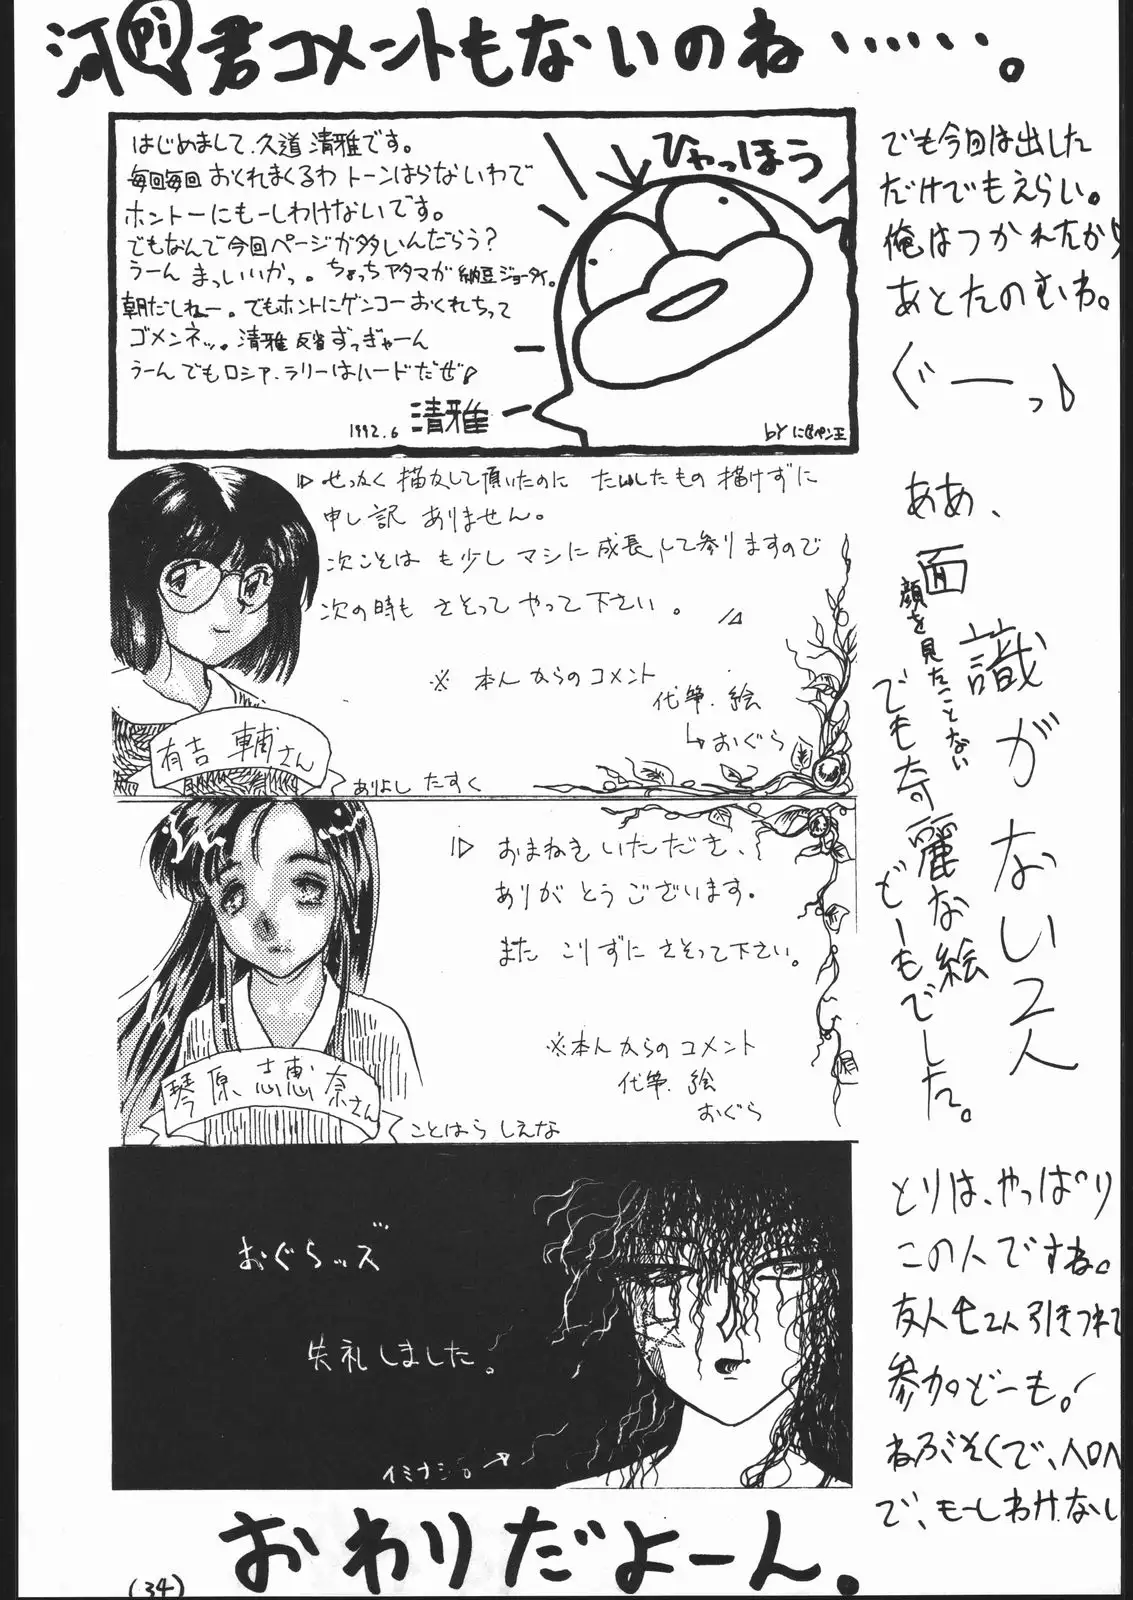 河合君コメントもないのね……。
はじめまして、久道 清雅です。
毎回毎回 おくれまくるわ トーンはらないわで
ホントーにもーしわけないです。
でもなんで今回ページが多いんだろう?
うーん まっいいかっ。ちょっちアタマが 納豆ジョータイ。
朝だしねー。でもホントにゲンコーおくれちって
ゴメンネッ。清雅 反省 ずっぎゃーん
うーん でもロシア.ラリーはハードだぜ♪
1992.6 清雅
ひゃっほう
by にせペン王
でも今回は出した
だけでもえらい。
俺はつかれたから
あとたのむね。
ぐーっ♪
▷せっかく 描かして頂いたのに たいしたもの 描けずに
申し訳 ありません。
次ことは も少し マシに 成長して参りますので
次の時も さそって やって 下さい。
※ 本人からのコメント
代筆.絵
↳おぐら
有吉 輔さん
ありよし たすく
▷ おまねき いただき、
ありがとうございます。
また こりずに さそって下さい。
※本人からの コメント
代筆.絵
おぐら
琴原 志恵奈さん
ことはら しえな
ああ、
面識がない2人
顔を見たことない
でも奇麗な絵
どーもでした。
おぐらッズ
失礼しました。
イミナシ。
とりは、やっぱり
この人ですね。
友人も2人引きつれて
参加どーも!
ねぶそくで、ヘロヘロ
で、もーしわけなし
おわりだよーん。
(34)